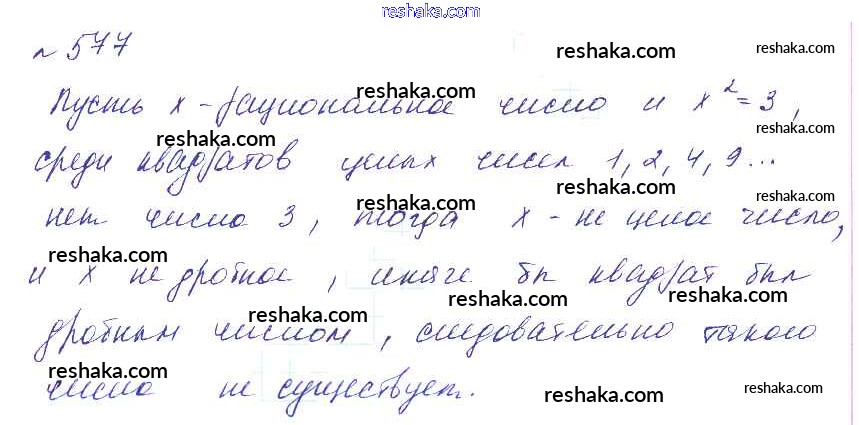 reshaka.com
№ 577
reshaka.com reshaka.com
reshaka.com
Пусть x - рациональное число и x² = 3,
reshaka.com reshaka.com reshaka.com
среди квадратов целых чисел 1, 2, 4, 9...
reshaka.com reshaka.com
нет числа 3, тогда x - не целое число,
reshaka.com reshaka.com reshaka.com
и x не дробное, иначе бы квадрат был
reshaka.com reshaka.com reshaka.com
дробным числом, следовательно такого
reshaka.com reshaka.com
числа не существует.
reshaka.com reshaka.com reshaka.com